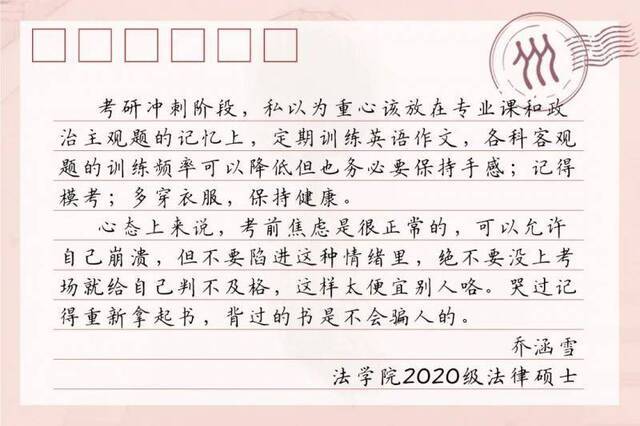 考研冲刺阶段，私以为重心该放在专业课和政
治主观题的记忆上，定期训练英语作文，各科客观
题的训练频率可以降低但也务必要保持手感；记得
模考；多穿衣服，保持健康。
心态上来说，考前焦虑是很正常的，可以允许
自己崩溃，但不要陷进这种情绪里，绝不要没上考
场就给自己判不及格，这样太便宜别人咯。哭过记
得重新拿起书，背过的书是不会骗人的。
乔涵雪
法学院2020级法律硕士